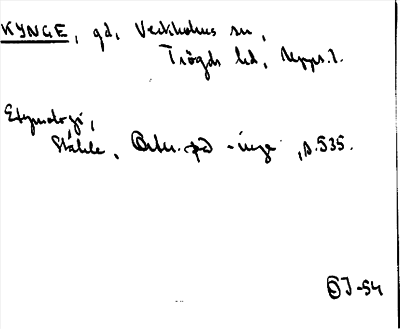 KYNGE, gd, Veckholms sn,
Trögds hd, Upps. l.
Etymologi,
Ståhle, Ortn. på -inge, s. 535.
OJ -54